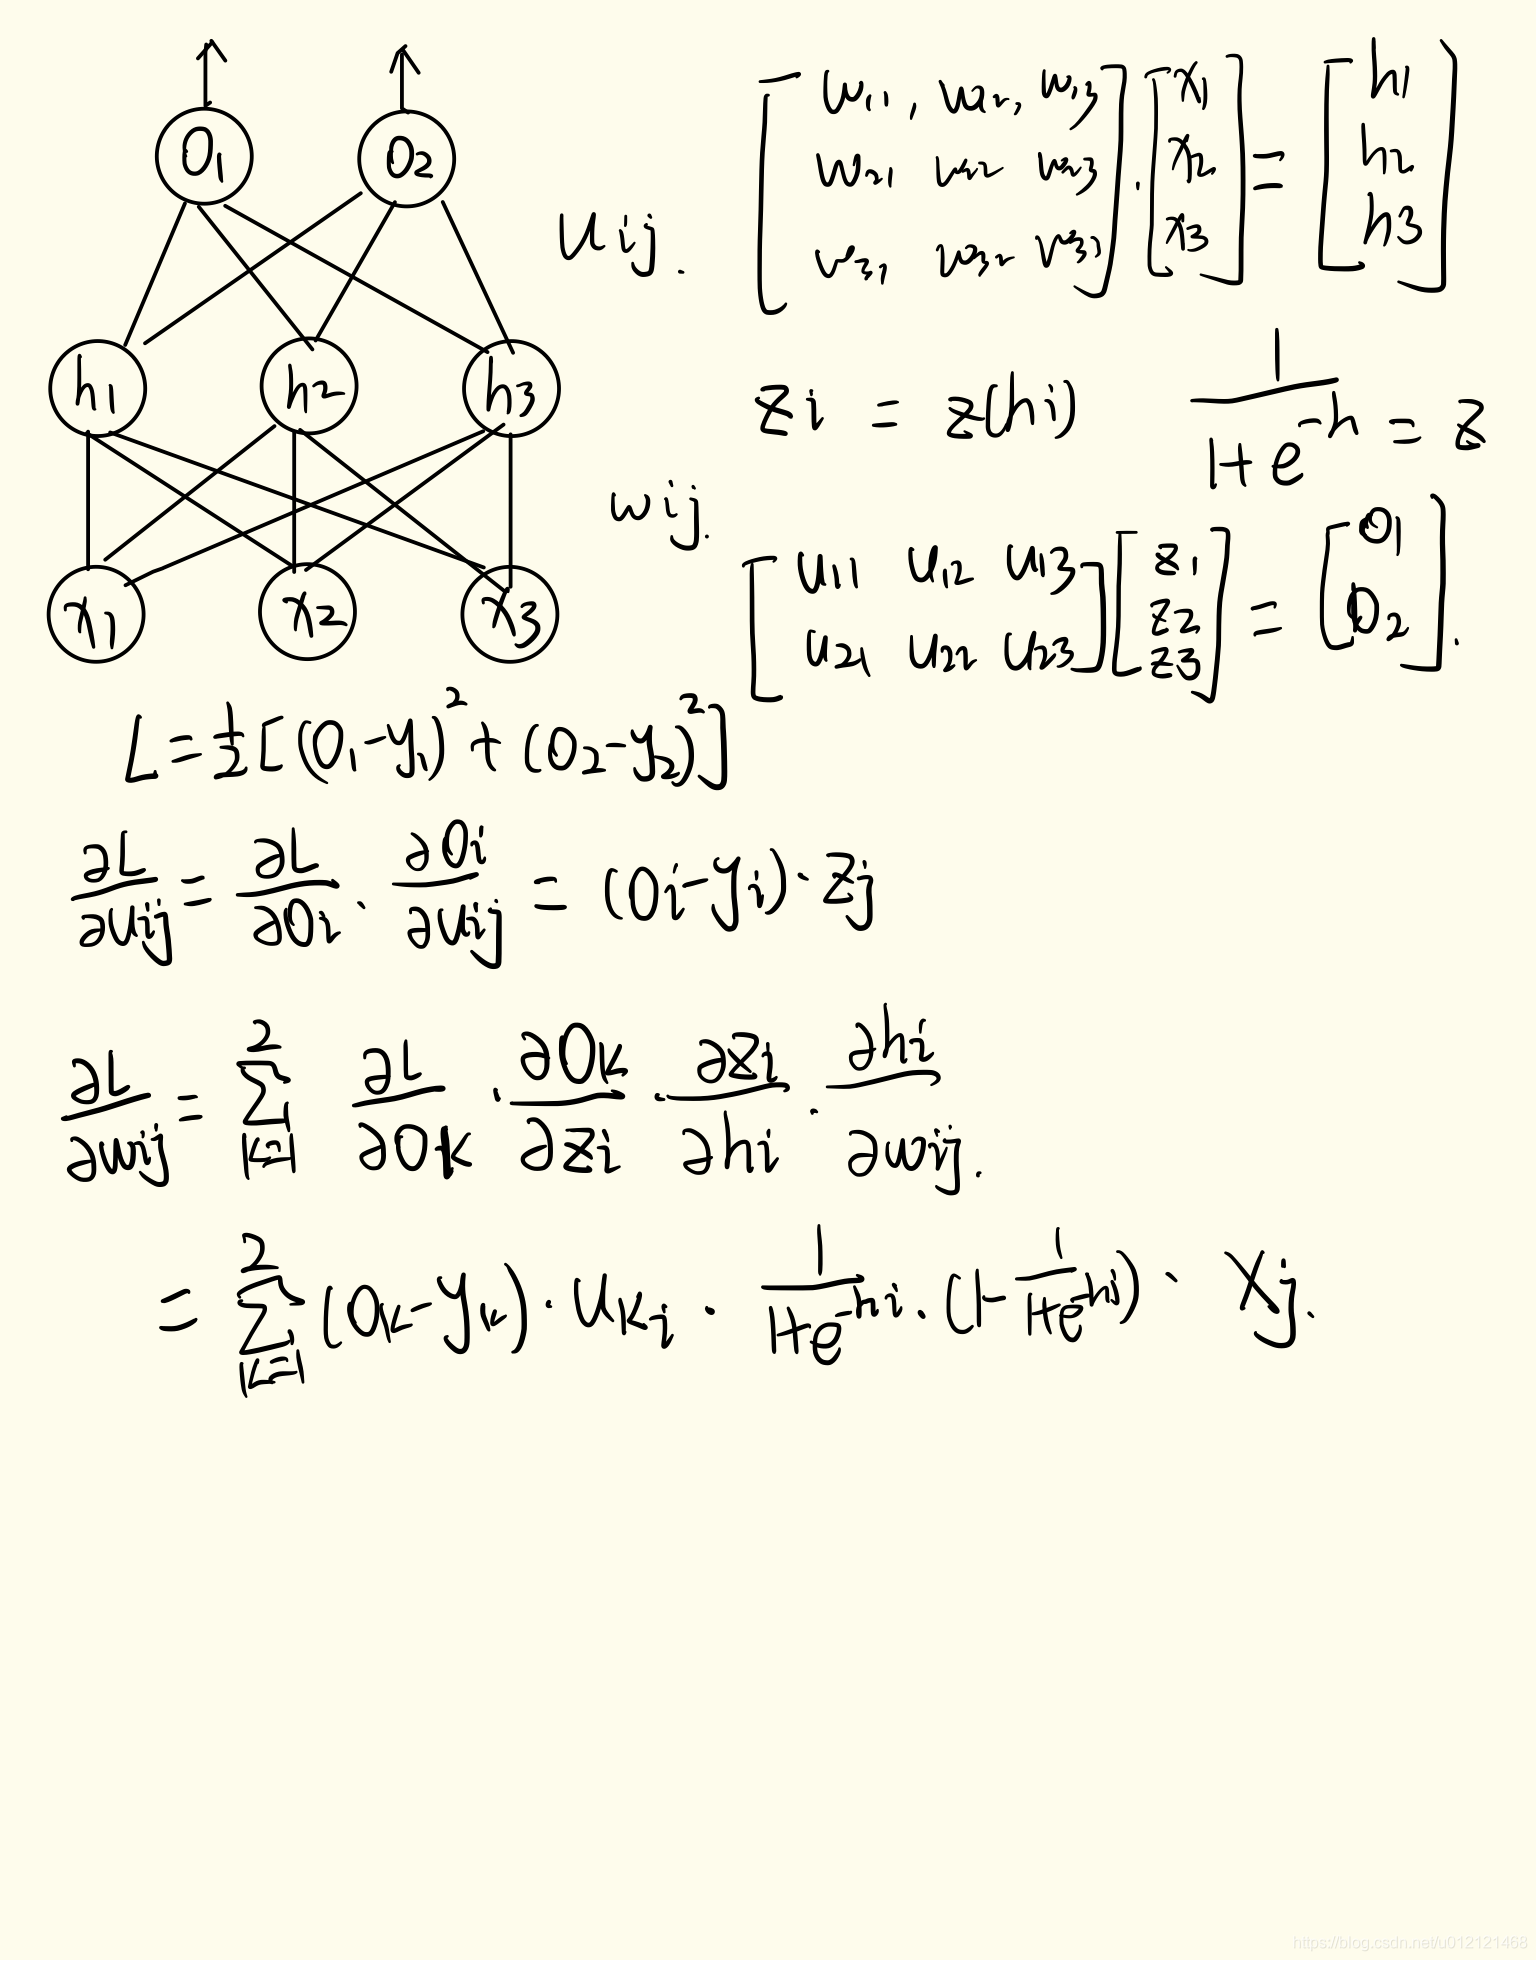 O1 O2
h1 h2 h3
x1 x2 x3
uij.
wij.
[w11, w12, w13
w21 w22 w23
w31 w32 w33] · [x1
x2
x3] = [h1
h2
h3]
zi = z(hi) 1/(1+e^-h) = z
[u11 u12 u13
u21 u22 u23] [z1
z2
z3] = [O1
O2].
L = 1/2 [(O1-y1)^2 + (O2-y2)^2]
∂L/∂uij = ∂L/∂Oi · ∂Oi/∂uij = (Oi-yi)·zj
∂L/∂wij = ∑_{k=1}^{2} ∂L/∂Ok · ∂Ok/∂zi · ∂zi/∂hi · ∂hi/∂wij.
= ∑_{k=1}^{2} (Ok-yk) · uki · 1/(1+e^-hi) · (1 - 1/(1+e^-hi)) · xj.
https://blog.csdn.net/u012121468